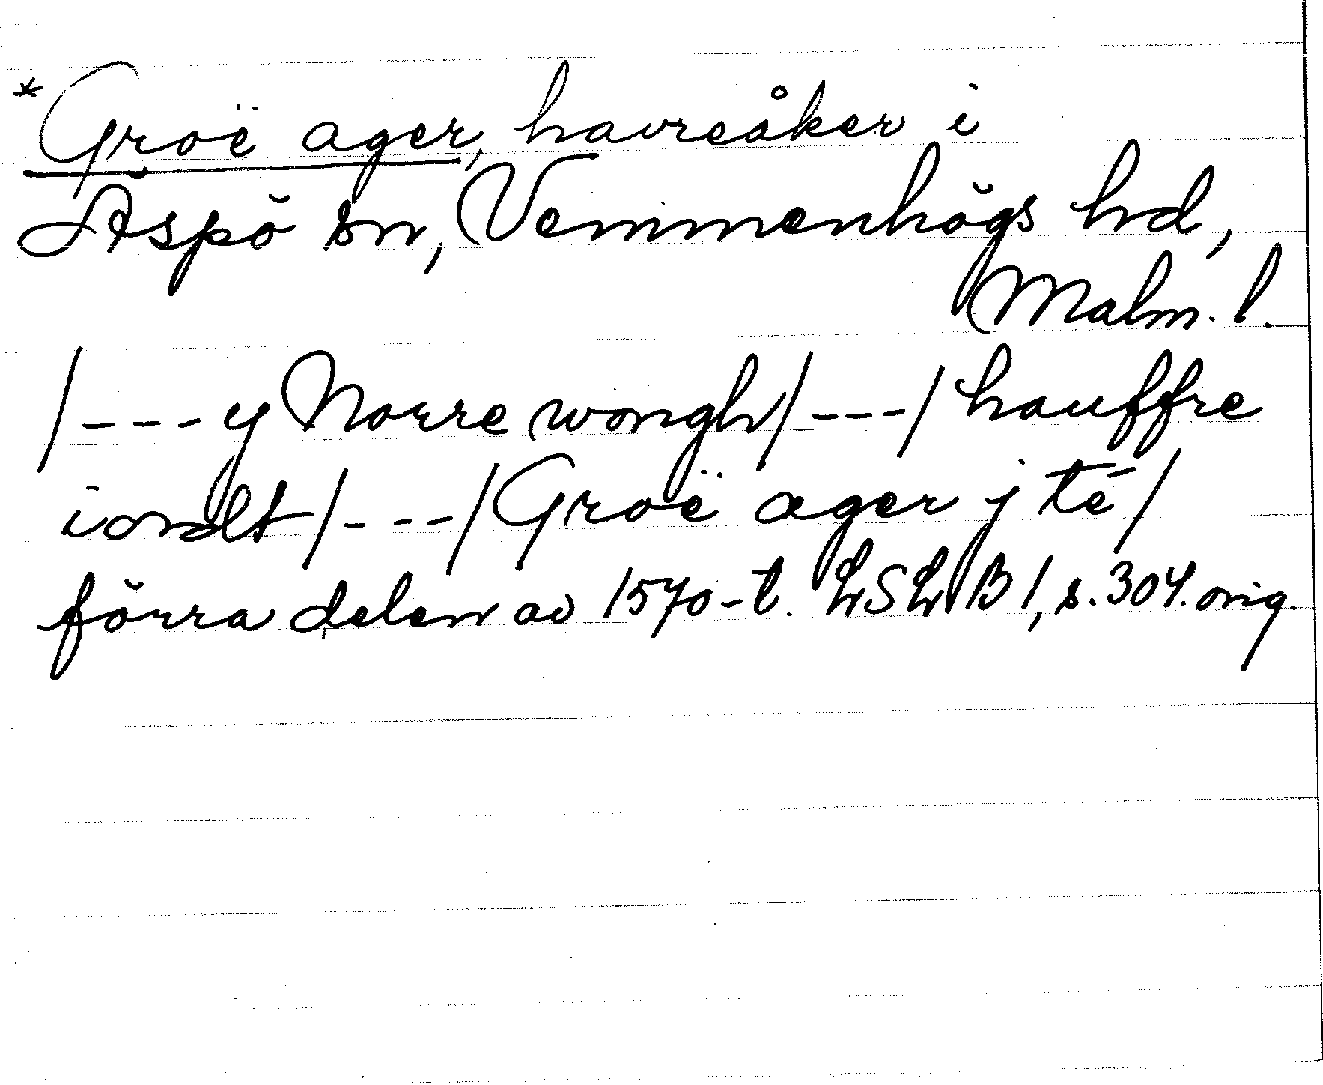 *Groë ager, havreåker i
Äspö sn, Vemmenhögs hd,
Malm. l.
/---y Norre wongh/---/hauffre
iordt/---/Groë ager j té/
förra delen av 1570-t. LSLB1, s.304.orig.